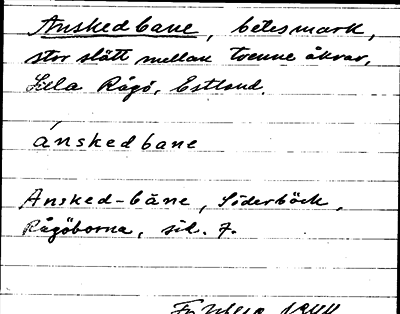 Anskedbane, betesmark,
stor slätt mellan tvenne åkrar,
Lilla Rågö, Estland.
ánskedbane
Ansked-bāne, Söderbäck,
Rågöborna, sid. 7.